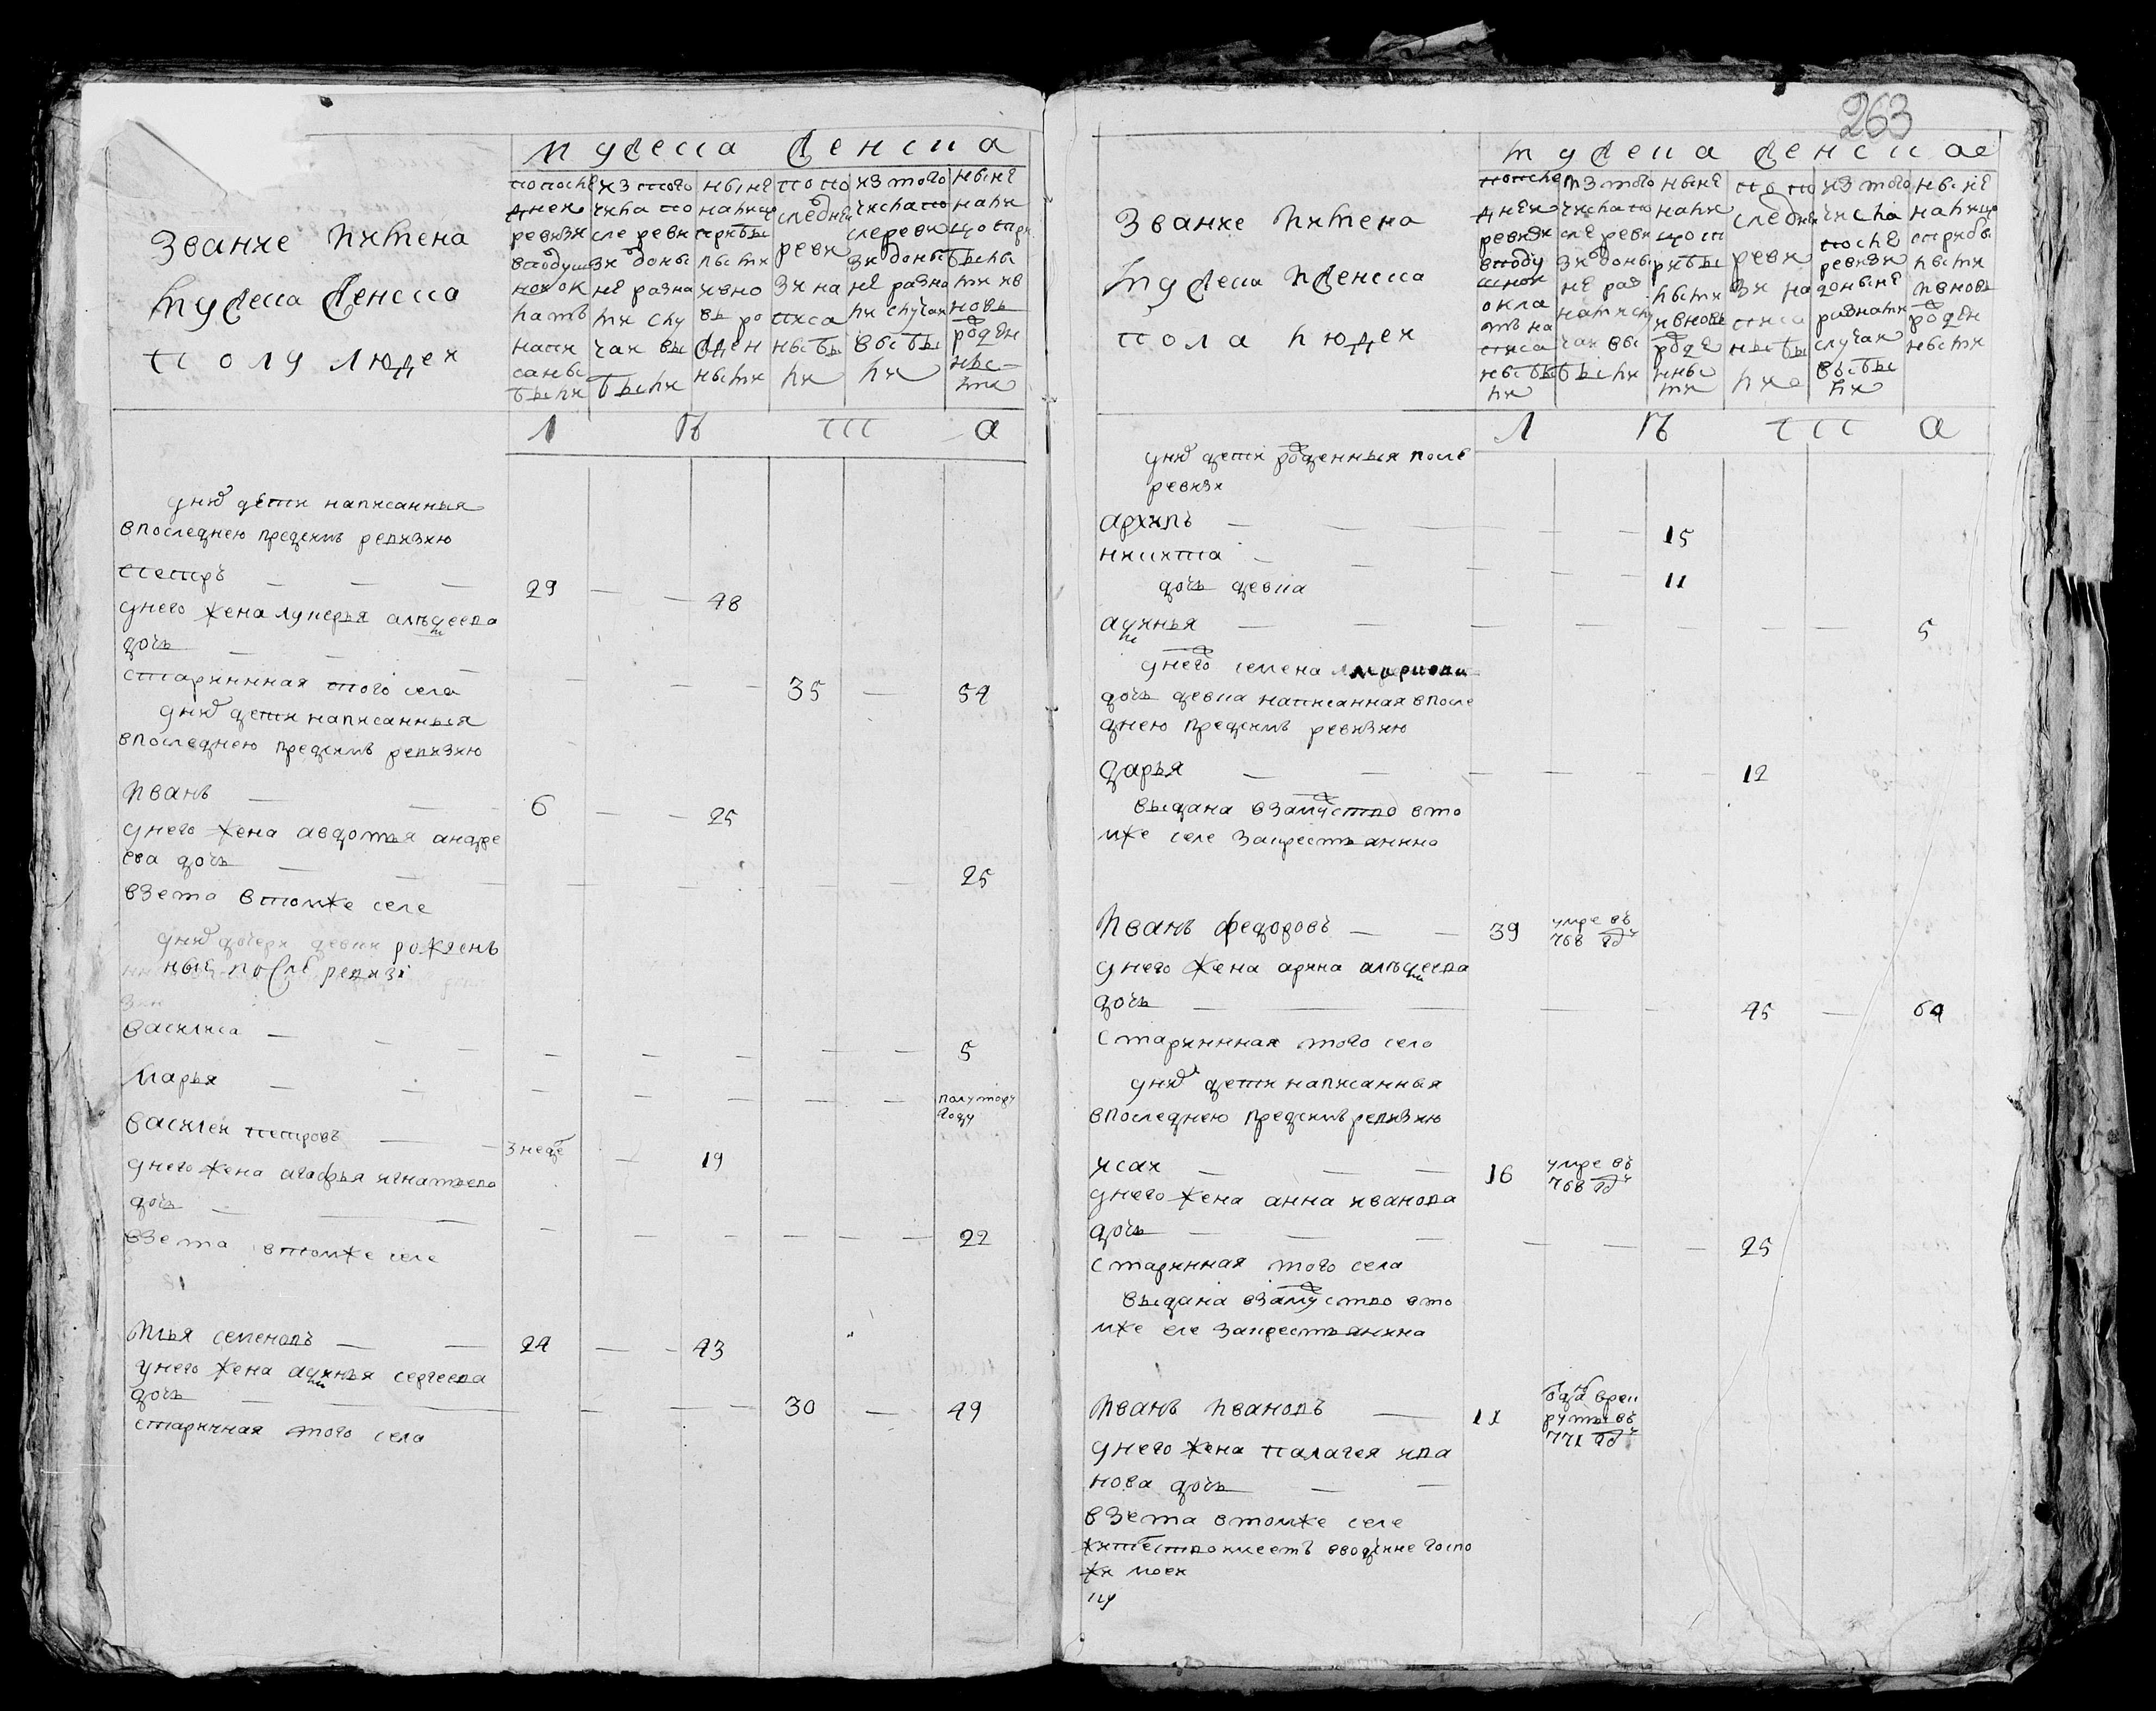 263
мужеска женска
Звание и имена
мужеска женска
полу людей
по после
дней
ревизи
в подуш
ной ок
ладъ
напи
саны
были
из того
числа по
сле реви
зи до ны
не разны
ми слу
чаи вы
были
ныне
на лицо
с прибы
лыми
и вно
въ ро
жден
ными
по по
следней
реви
зи на
писа
ны бы
ли
из того
числа по
слереви
зи доны
не разны
ми случаи
выбы
ли
ныне
на ли
цо с при
былы
ми и в
новь
рожден
ны
ми
Л П Ш А
у них дети написанныя
в последнею пред симъ ревизию
Петръ 29 48
у него жена лукерья алѣксеева
дочь
стариннная того села 35 54
у них дети написанныя
в последнею пред симъ ревизию
Иванъ 6 25
у него жена авдотья андре
ева дочь 25
взета в томже селе
у них дочери девки рожден
ные после ревизи
василиса 5
Марья полутору
году
василей петровъ 3 неде 19
у него жена агафья игнатьева
дочь
взета в томже селе 22
Илья семеновъ 24 43
у него жена аксинья сергеева
дочь 30 49
старинная того села
мужеска женска
Звание и имена
мужеска и женска
пола людей
Л П Ш А
у них дети рожденныя после
ревизи
архипъ 15
никита 11
дочь девка
аксинья 5
у него семена
дочь девка написанная в после
днею пред симъ ревизию
дарья 12
выдана в замужство в то
мже селе за крестьянина
Иванъ федоровъ 39 умре въ
768 году
у него жена арина алѣксеева
дочь 45 64
стариннная того села
у них дети написанныя
в последнею пред симъ ревизию
исай 16 умре въ
768 году
у него жена анна иванова
дочь 25
старинная того села
выдана в замужство в то
мже селе за крестьянина
Иванъ Ивановъ 11 отдан в рек
руты въ
771 году
у него жена палагея ива
нова дочь
взета в томже селе
жителство имеетъ в вотчине госпо
жи моей